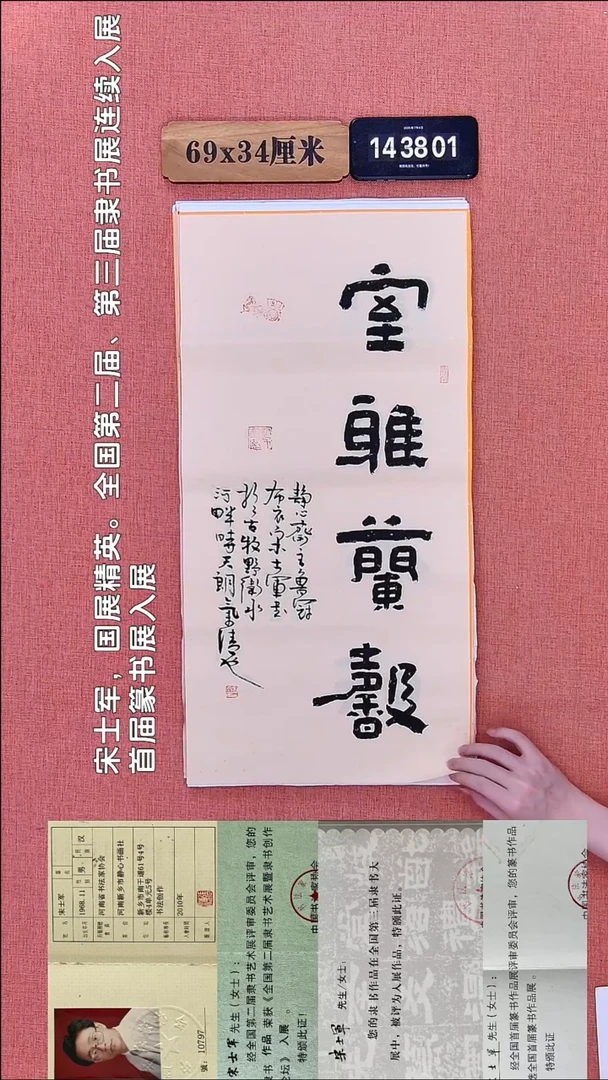 宋士军，国展精英。全国第二届、第三届隶书展连续入展
首届篆书展入展
69x34厘米
14 38 01
室雅蘭馨
静心斋主鲁冠
布衣宋士軍書
於古牧野衛水
河畔時天朗氣清也
宋士军
1968.11
男
汉
河南省书法家协会
河南新乡市静心书画社
新乡市南干道61号4号
楼4单元5号
书法创作
2010年
號：10797
宋士军 先生（女士）：
经全国第二届隶书艺术展评审委员会评审，您的
隶书 作品 荣获《全国第二届隶书艺术展暨隶书创作
论坛》入展。
特颁此证！
宋士军 先生（女士）：
您的隶书作品在全国第三届隶书大
展中，被评为入展作品，特颁此证。
士军 先生（女士）：
经全国首届篆书作品展评审委员会评审，您的篆书作品
全国首届篆书作品展。
特颁此证